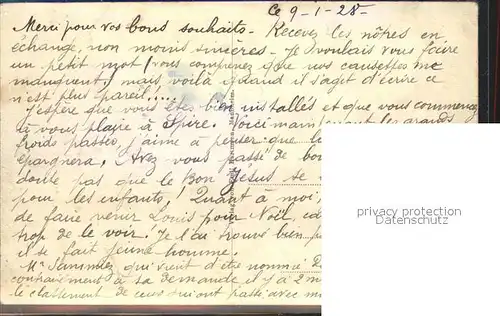 Ce 9-1-28-
Merci pour vos bons souhaits - Recevez les nôtres en
échange, non moins sincères - Je voulais vous faire
un petit mot (vous comprenez que nos causettes me
manquent) mais voilà quand il s'agit d'écrire ce
n'est plus pareil!...
J'espère que vous êtes bien installés et que vous commencez
à vous plaire à Spire. Voici maintenant les grands
froids passés, j'aime à penser que
épargnera. Avez vous passé de
doute pas que le Bon Jésus se
pour les enfants! Quant à moi,
de faire venir Louis pour Noël,
trop de le voir. Je l'ai trouvé bien
il se fait jeune homme.
Mr qui vient d'être nommé
contrairement à sa demande, il y a 2
le classement de ceux qui ont passé avec
privacy protection
Datenschutz